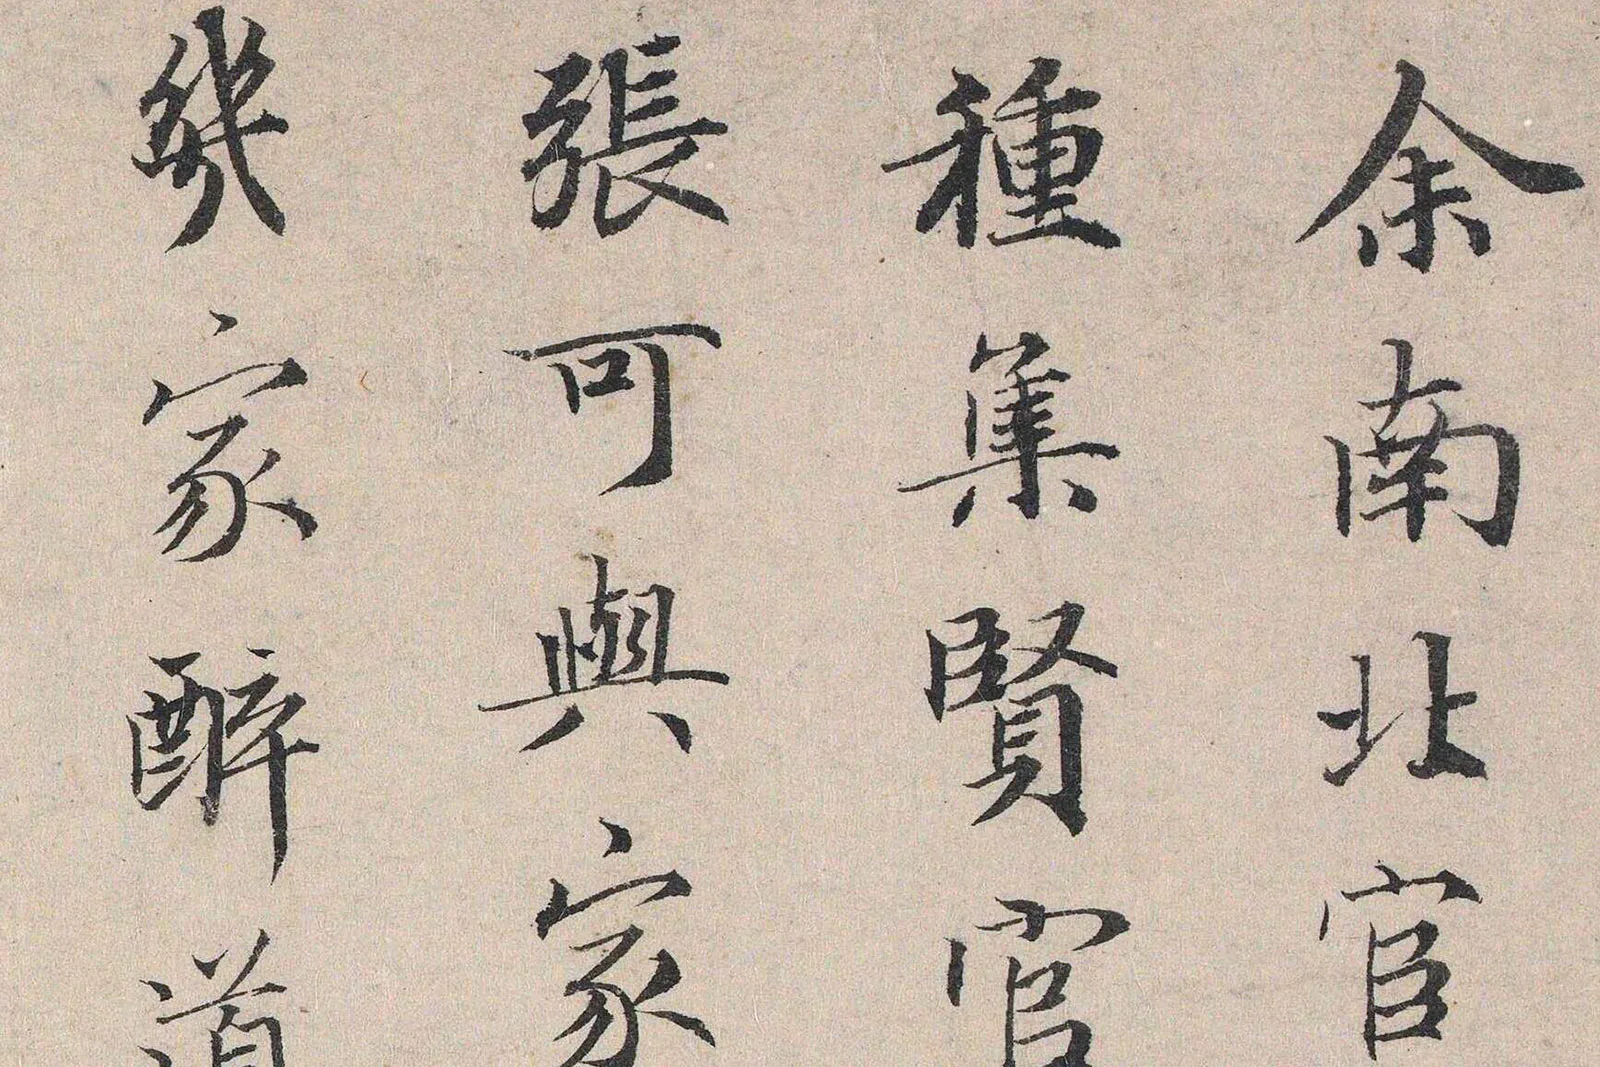 余南北宦
種集賢官
張可與家
幾家醉道